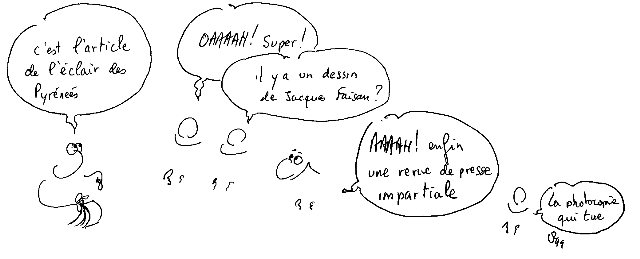 c'est l'article
de l'éclair des
Pyrénées
OAAAAH! Super!
il y a un dessin
de Jacques Faisan?
AAAAH! enfin
une revue de presse
impartiale
La photocopie
qui tue